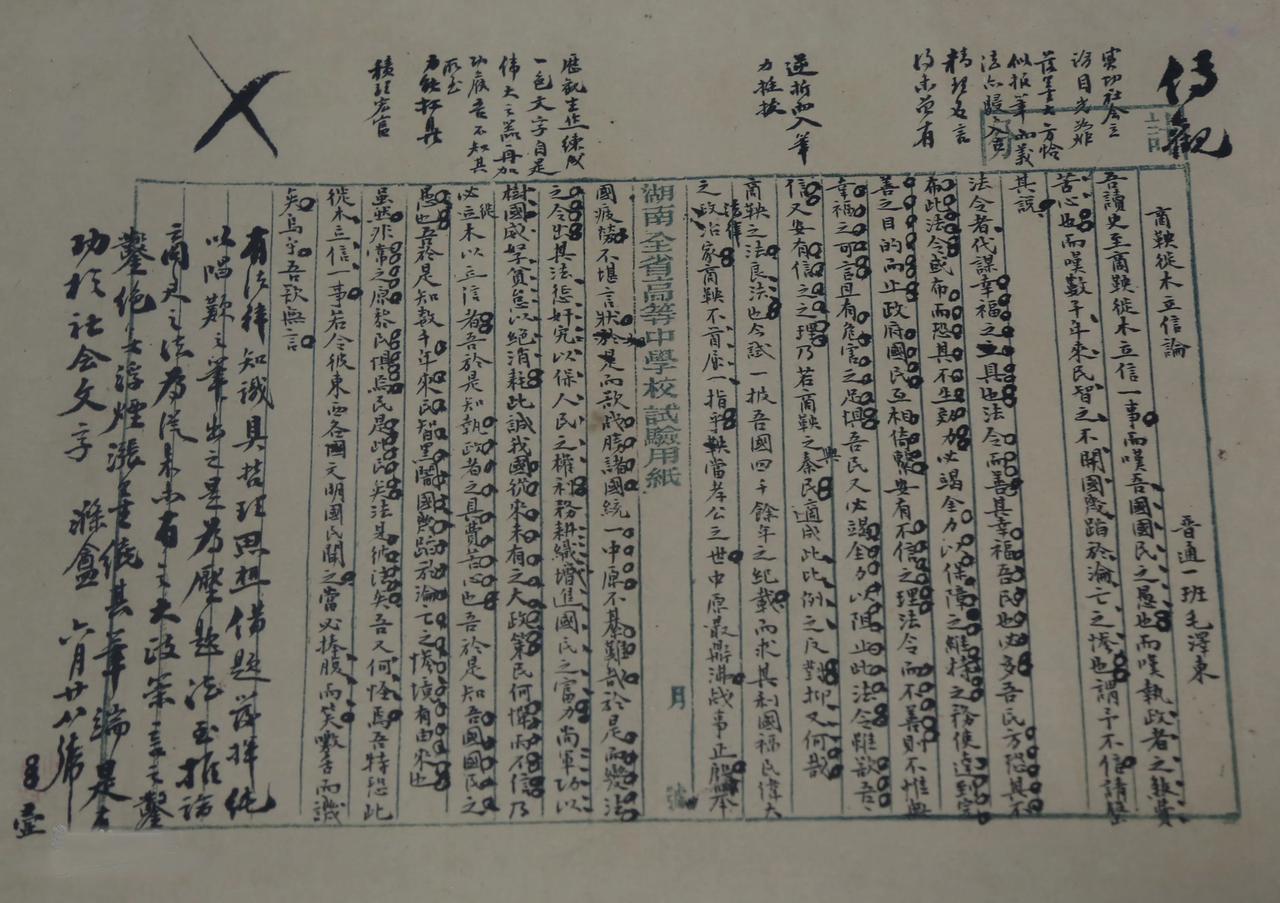 傳觀
實切社會立
論目光如炬
落墨大方恰
似報筆而義
法亦駸入古
精理名言
得未曾有
逆折而入筆
力挺拔
歷觀生作練成
一色文字自是
偉大之器再加
功候吾不知其
所至
力能扛鼎
積理宏富
普通一班毛澤東
商鞅徙木立信論
吾讀史至商鞅徙木立信一事而嘆吾國國民之愚也而嘆執政者之煞費
苦心也而嘆數千年來民智之不開國幾蹈於淪亡之慘也謂予不信請罄
其說
法令者代謀幸福之具也法令而善其幸福吾民也必多吾民方恐其不
布此法令或布而恐其不生效力必竭全力以保障之維持之務使達到完
善之目的而止政府國民互相倚繫安有不信之理法令而不善則不惟無
幸福之可言且有危害之足懼吾民又必竭全力以阻止此法令雖欲吾
信又安有信之之理乃若商鞅之與秦民適成此比例之反對抑又何哉
商鞅之法良法也今試一披吾國四千餘年之紀載而求其利國福民偉大
之政治家商鞅不首屈一指乎鞅當孝公之世中原最鼎沸戰事正殷舉
湖南全省高等中學校試驗用紙
月 號
國疲勞不堪言狀於是而欲戰勝諸國統一中原不綦難哉於是而變法
之令出其法懲奸宄以保人民之權利務耕織增進國民之富力尚軍功以
樹國威孥貧怠以絕消耗此誠我國從來未有之大政策民何憚而不信乃
必徙木以立信者吾於是知執政者之具費苦心也吾於是知吾國國民之
愚也吾於是知數千年來民智黑闇國幾蹈於淪亡之慘境有由來也
雖然非常之原黎民懼焉民是此民矣法是彼法矣吾又何怪焉吾特恐此
徙木立信一事若令彼東西各國文明國民聞之當必捧腹而笑噭舌而譏
矣烏乎吾欲無言
有法律知識具哲理思想借題發揮純
以唱歎之筆出之是為壓題法至推論
商君之法為從來未有之大政策言之鑿
鑿絕無浮煙漲墨繞其筆端是有
功於社會文字 滌盦 六月廿八號